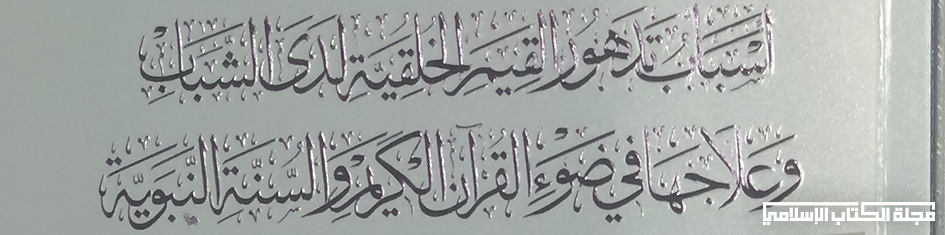 أسباب تدهور القيم الخلقية لدى الشباب
وعلاجها في ضوء القرآن الكريم والسنة النبوية
مجلة الكتاب الإسلامي